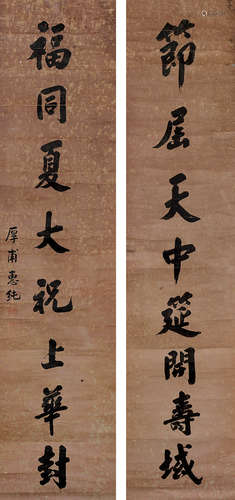 節届天中筵開壽域
福同夏大祝上華封
厚甫惠純